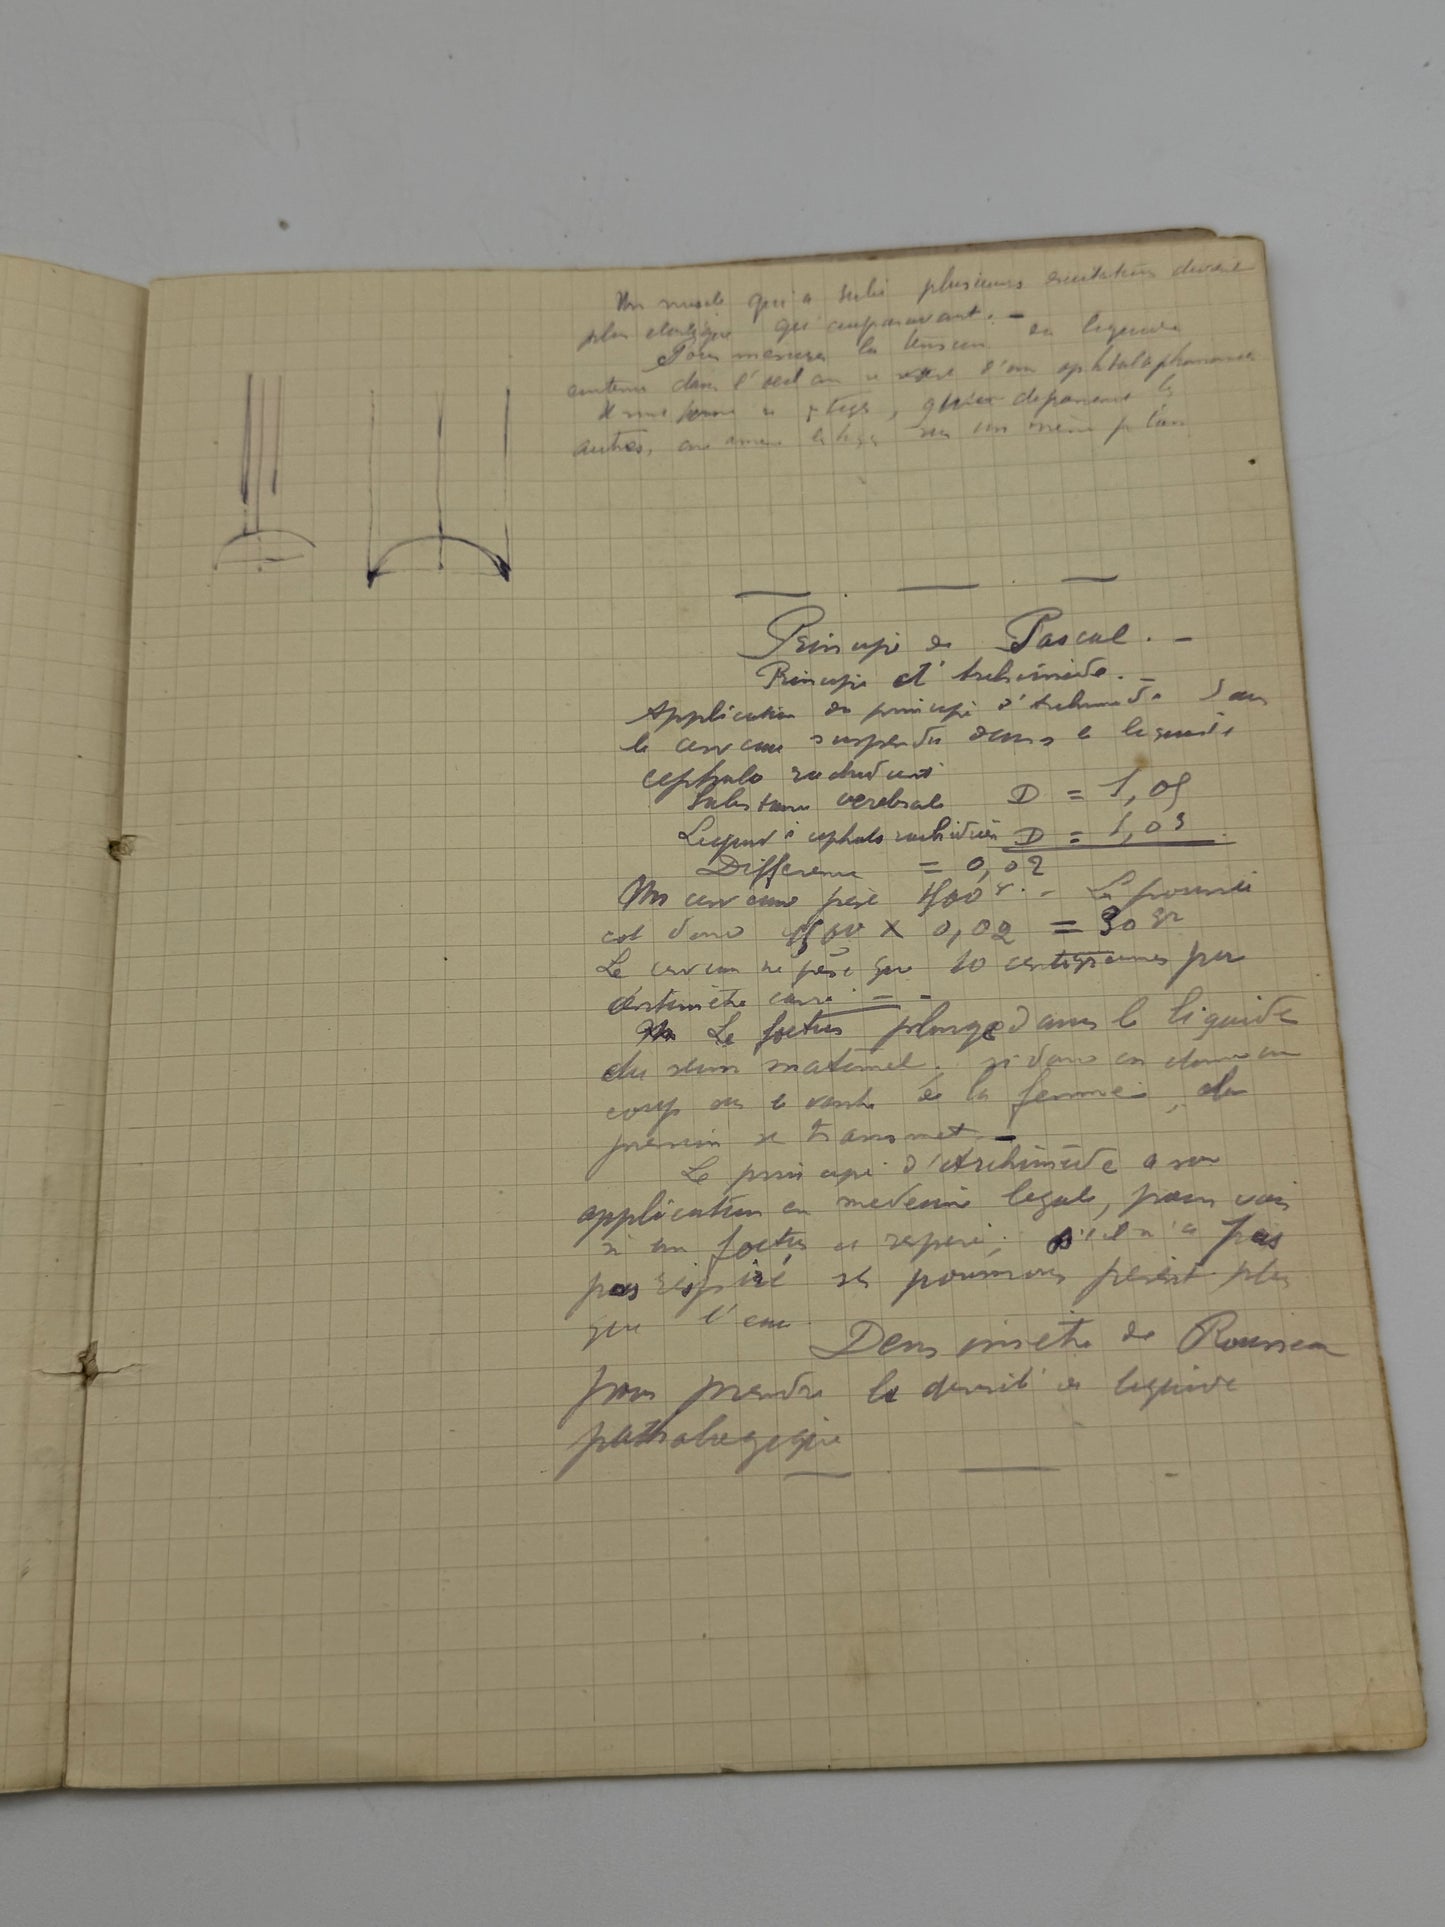 Un muscle qui a subi plusieurs excitations devient
plus élastique qu'auparavant. –
Pour mesurer la tension du liquide
contenu dans l'oeil on se sert d'un
autres, on amène les tiges sur un même plan
Principe de Pascal. –
Principe d'Archimède. –
Application du principe d'Archimède dans
le cerveau suspendu dans le liquide
cephalo rachidien
Substance cérébrale D = 1,05
Liquide cephalo rachidien D = 1,03
Difference = 0,02
Un cerveau pèse 1500 gr. – La poussée
est donc 1500 x 0,02 = 30 gr
Le cerveau ne pèse que 10 centigrammes par
centimètre carré. –
Le foetus plongé dans le liquide
du sein maternel. si donc on donne un
coup sur le ventre de la femme, la
pression se transmet –
Le principe d'Archimède a son
application en medecine legale, pour voir
si un foetus a respiré; s'il n'a pas
pas respiré ses poumons pèsent plus
que l'eau.
Densimètre de Rousseau
pour prendre la densité de liquide
pathologique